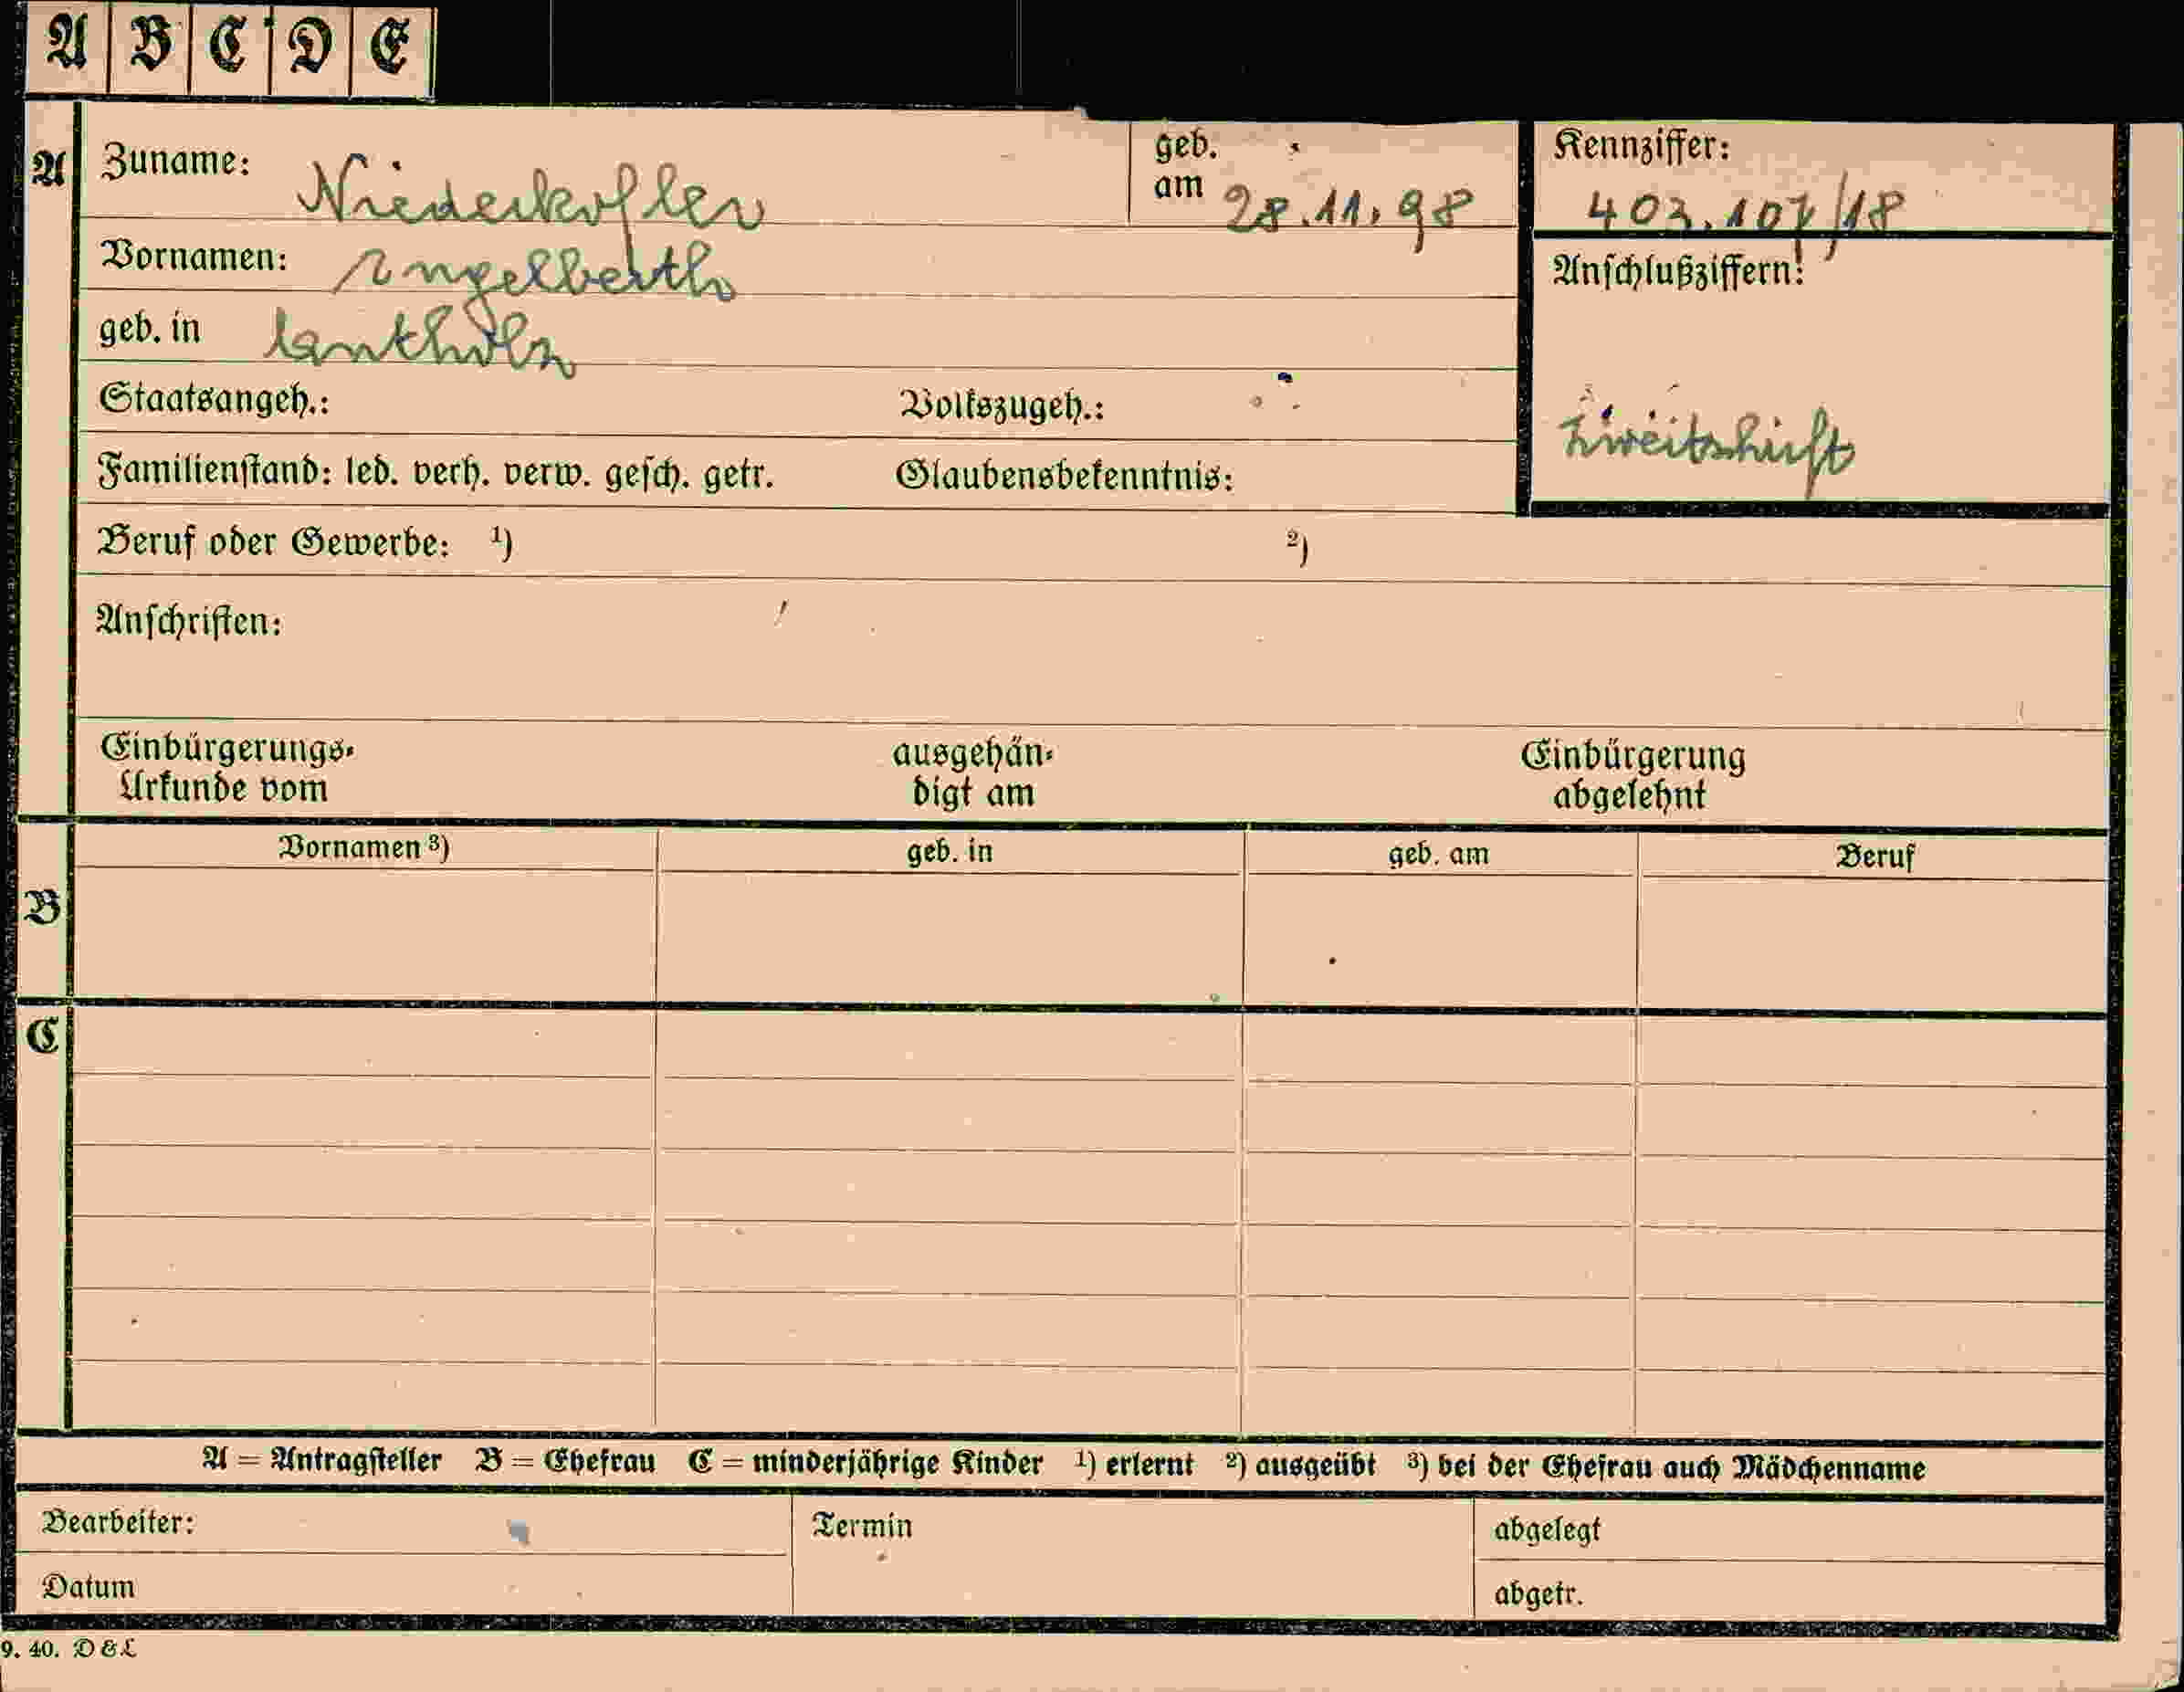 A B C D E
A Zuname: Niederkofler geb. am 28.11.98 Kennziffer: 403.107/18
Vornamen: Engelberth Anschlußziffern:
geb. in
Zweitschrift
Staatsangeh.: Volkszugeh.:
Familienstand: led. verh. verw. gesch. getr. Glaubensbekenntnis:
Beruf oder Gewerbe: 1) 2)
Anschriften:
Einbürgerungs- ausgehän- Einbürgerung
Urkunde vom digt am abgelehnt
Vornamen 3) geb. in geb. am Beruf
B
C
A = Antragsteller B = Ehefrau C = minderjährige Kinder 1) erlernt 2) ausgeübt 3) bei der Ehefrau auch Mädchenname
Bearbeiter: Termin abgelegt
Datum abgetr.
9. 40. D & L